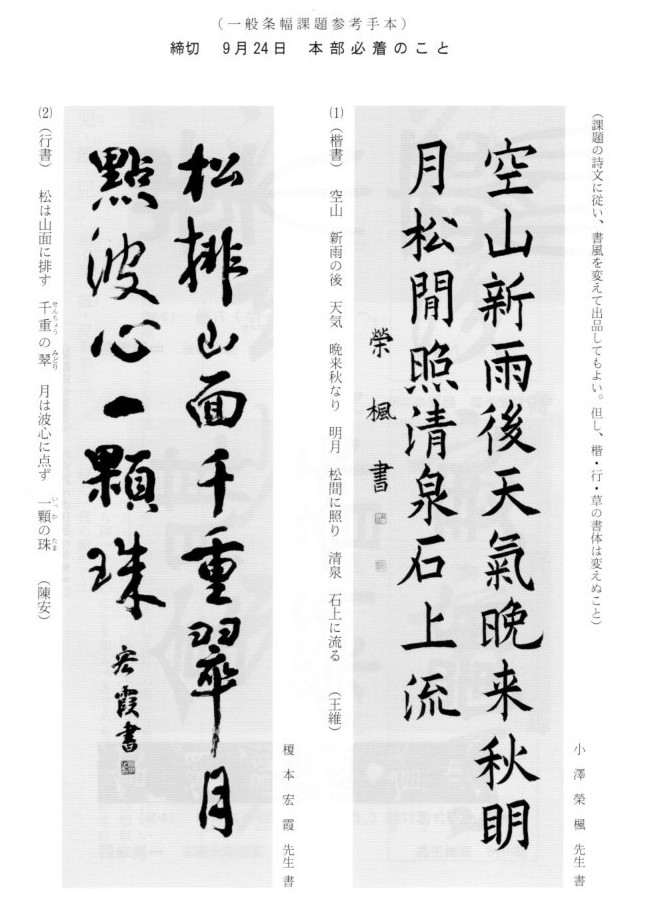 （一般条幅課題参考手本）
締切　9月24日　本部必着のこと
（課題の詩文に従い、書風を変えて出品してもよい。但し、楷・行・草の書体は変えぬこと）
小澤榮楓先生書
空山新雨後天氣晩来秋明
月松間照清泉石上流
榮楓書
(1)（楷書）　空山　新雨の後　天気　晩来秋なり　明月　松間に照り　清泉　石上に流る　（王維）
榎本宏霞先生書
松排山面千重翠月
點波心一顆珠
宏霞書
(2)（行書）　松は山面に排す　千重の翠　月は波心に点ず　一顆の珠　（陳安）
せんちょう　みどり　いっか　たま